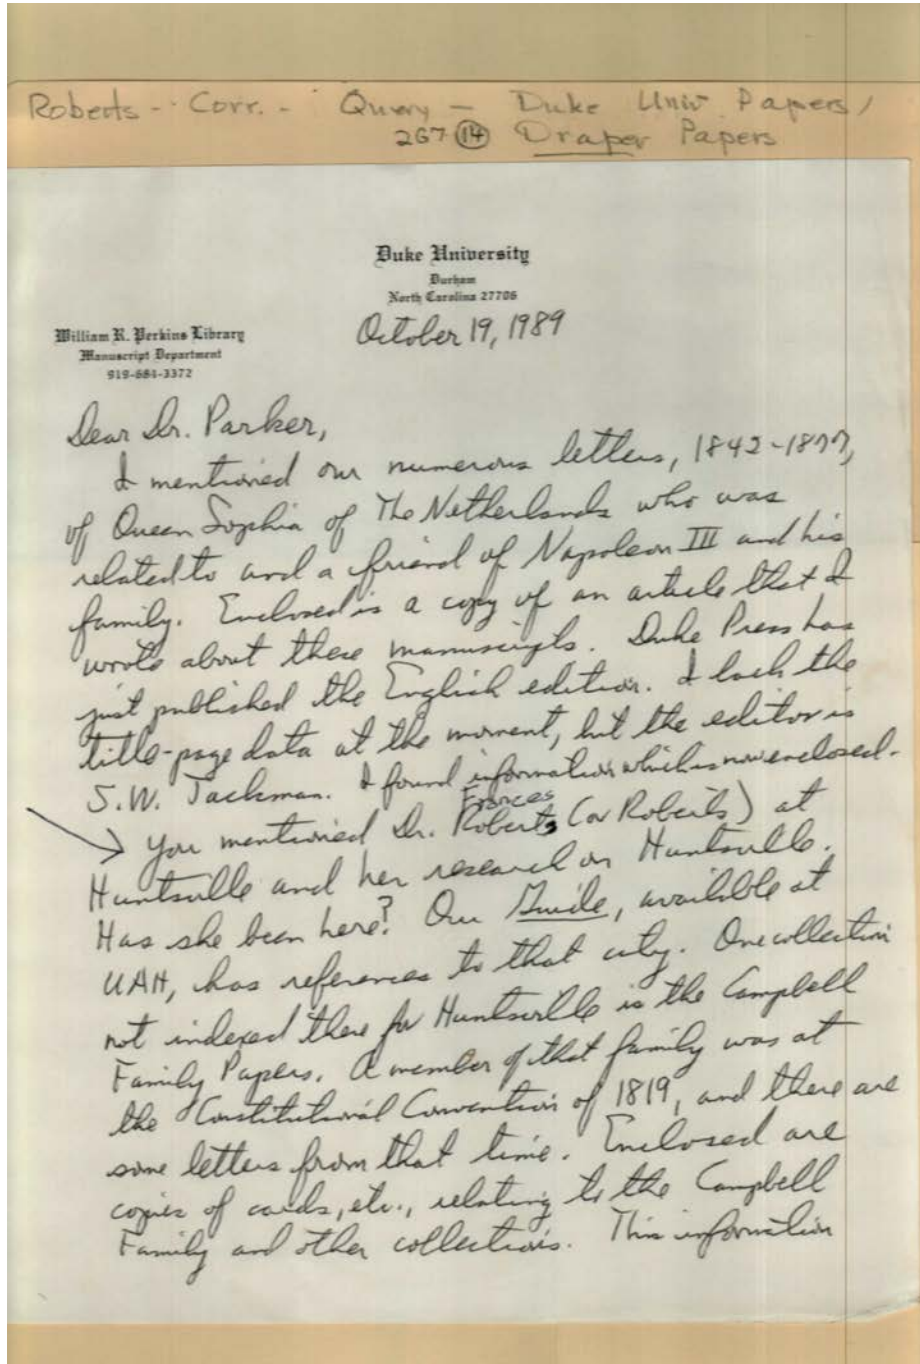 Roberts - Corr. - Query - Duke Univ Papers /
267 (14) Draper Papers
Duke University
Durham
North Carolina 27706
October 19, 1989
William R. Perkins Library
Manuscript Department
919-684-3372
Dear Dr. Parker,
I mentioned our numerous letters, 1842-1877,
of Queen Sophia of The Netherlands who was
related to and a friend of Napoleon III and his
family. Enclosed is a copy of an article that I
wrote about these manuscripts. Duke Press has
just published the English edition. I lack the
title-page data at the moment, but the editor is
S.W. Jackman. I found information which is now enclosed.
Frances
You mentioned Dr. Roberts (or Roberts) at
Huntsville and her research on Huntsville.
Has she been here? Our Guide, available at
UAH, has references to that city. One collection
not indexed there for Huntsville is the Campbell
Family Papers. A member of that family was at
the Constitutional Convention of 1819, and there are
some letters from that time. Enclosed are
copies of cards, etc., relating to the Campbell
Family and other collections. This information